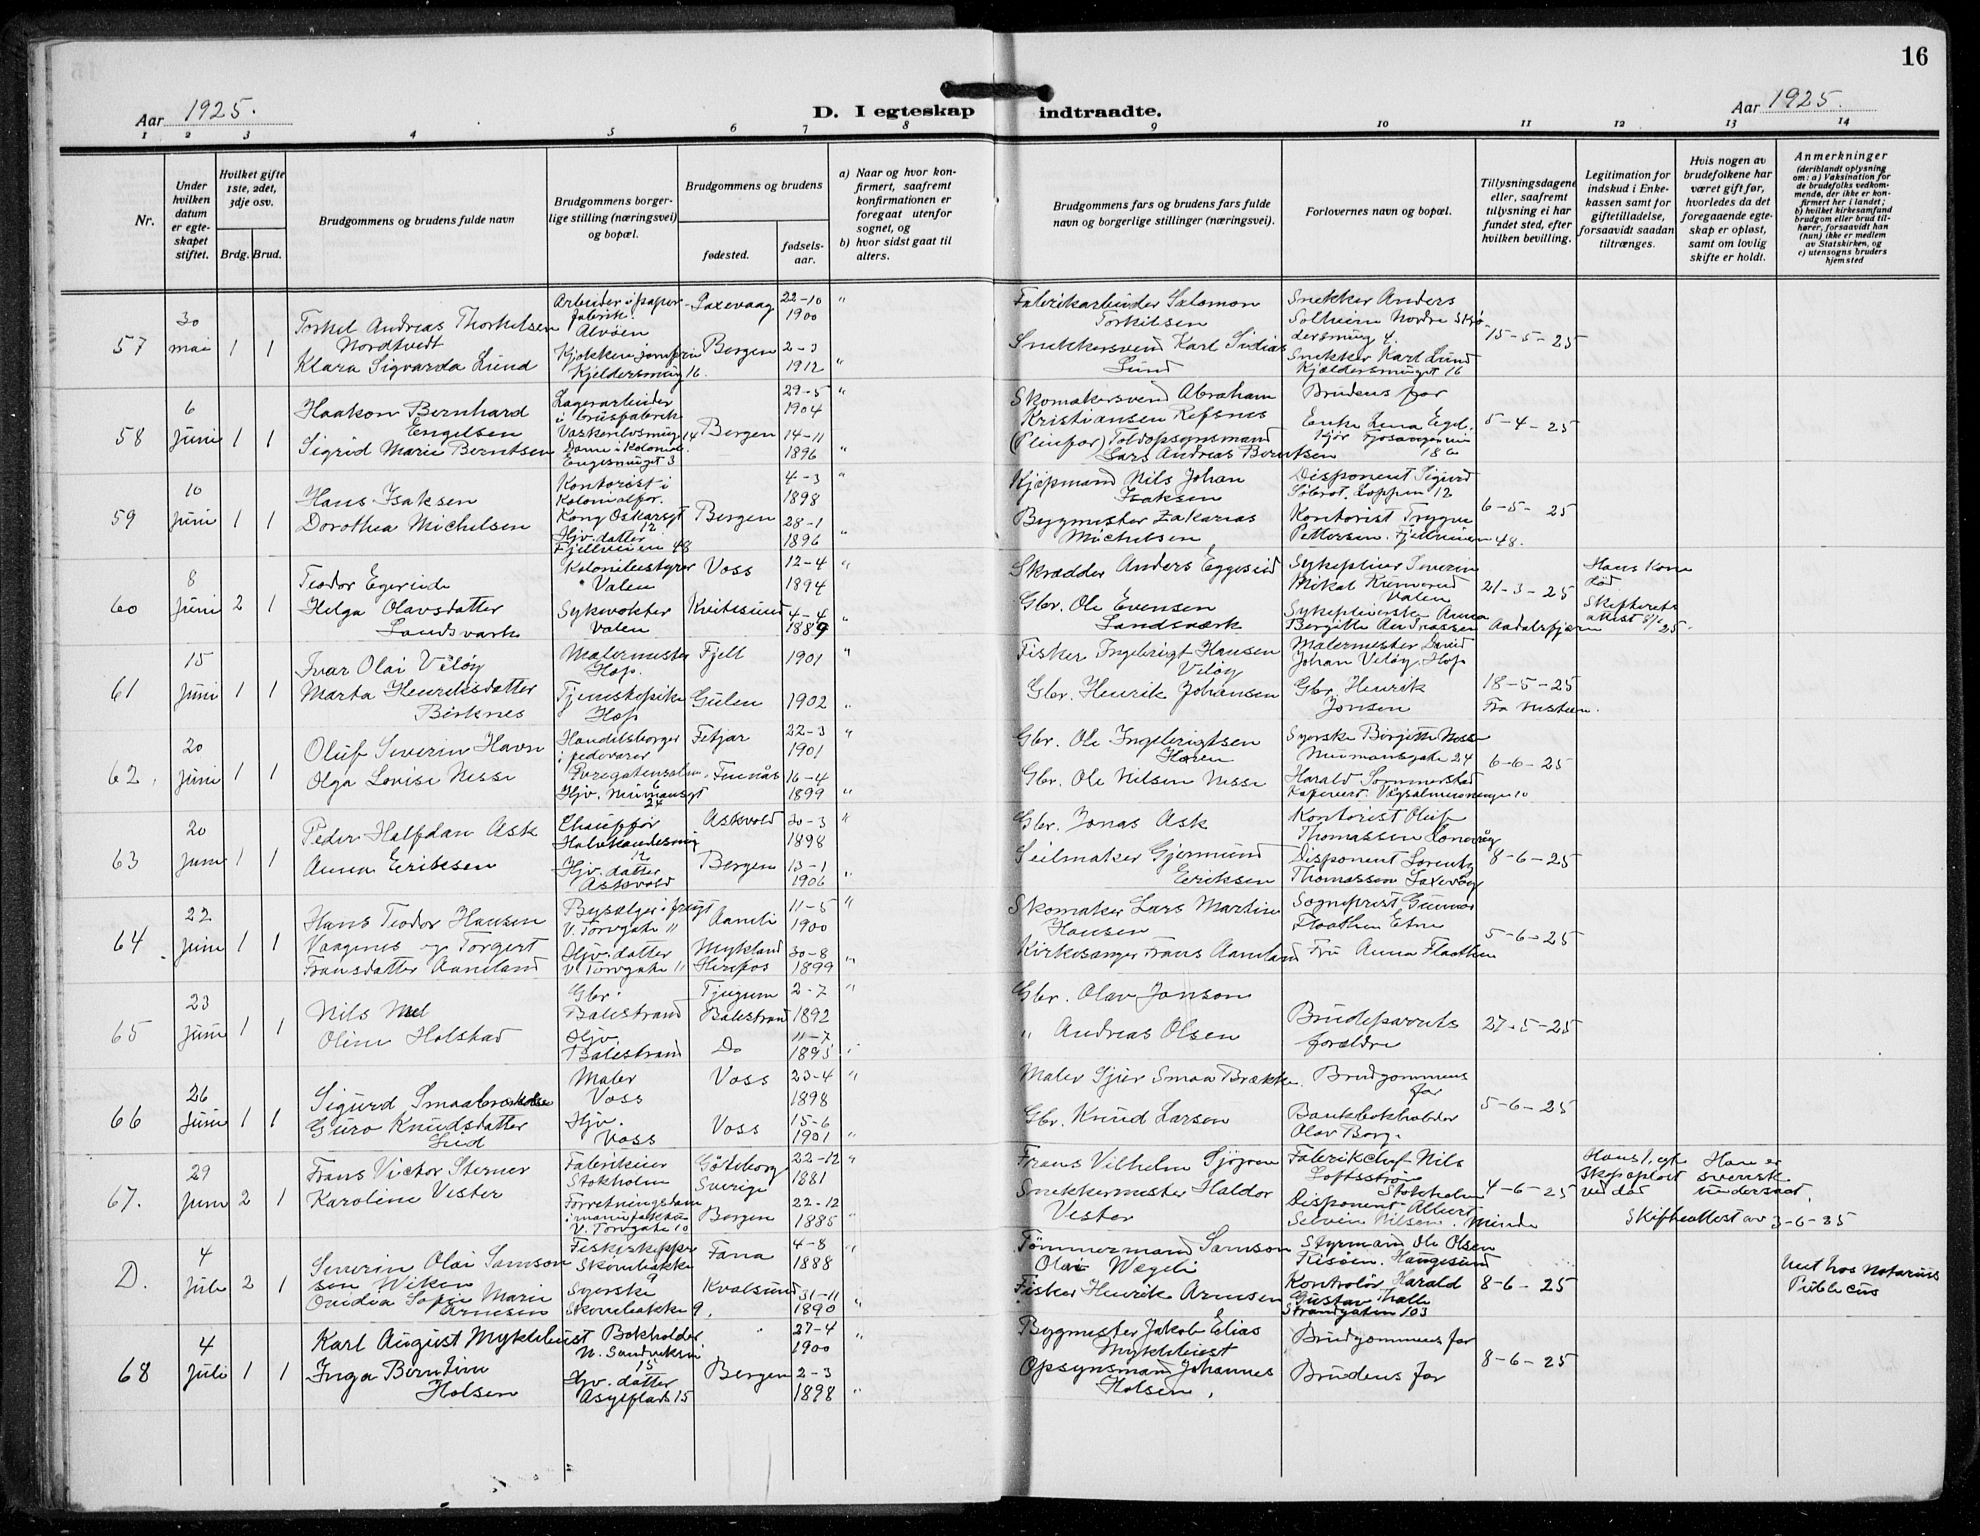 16
Aar 1925.
D. I egteskap indtraadte.
Aar 1925.
1 2 3 4 5 6 7 8 9 10 11 12 13 14
Nr.
Under hvilken datum er egteskapet stiftet.
Hvilket gifte 1ste, 2det, 3dje osv.
Brdg. Brud.
Brudgommens og brudens fulde navn
Brudgommens borgerlige stilling (næringsvei) og bopæl.
Brudgommens og brudens
fødested.
fødselsaar.
a) Naar og hvor konfirmert, saafremt konfirmationen er foregaat utenfor sognet, og
b) hvor sidst gaat til alters.
Brudgommens fars og brudens fars fulde navn og borgerlige stillinger (næringsvei).
Forlovernes navn og bopæl.
Tillysningsdagene eller, saafremt tillysning ei har fundet sted, efter hvilken bevilling.
Legitimation for indskud i Enkekassen samt for giftetilladelse, forsaavidt saadan tiltrænges.
Hvis nogen av brudefolkene har været gift før, hvorledes da det foregaaende egteskap er opløst, samt om lovlig skifte er holdt.
Anmerkninger
(deriblandt oplysning om: a) Vaksination for de brudefolks vedkommende, der ikke er konfirmert her i landet;
b) hvilket kirkesamfund brudgom eller brud tilhører, forsaavidt han (hun) ikke er medlem av Statskirken, og
c) utensogns bruders hjemsted
57 30 mai 1 1
Torkel Andreas Thorkelsen Nordtvedt
Klara Sigvarda Lund
Arbeider i papirfabrik. Alvøen
Kjøkkenjomfru Kjeldersmug 16.
Laxevaag 22-10 1900 "
Bergen 2-3 1912 "
Fabrikarbeider Salomon Torkilsen
Snekkersvend Karl Lund
Snekker Anders Solheim Nordre
Snekker Karl Lund Kjeldersmuget 16
15-5-25
58 6 Juni 1 1
Haakon Bernhard Engelsen
Sigrid Marie Berntsen
Lagerarbeider
Dame i Kolonial. Engesmuget 3
Bergen
29-5 1904 "
14-11 1896 "
Skomakersvend Abraham Kristiansen Refsnes
(Pleiefar) Toldopsynsmand Lars Andreas Berntsen
Brudens far
Enke Lina
5-4-25
59 10 Juni 1 1
Hans Isaksen
Dorothea Michelsen
Kontorist i Kolonialfor. Kong Oskarsgt 12
Hjv. datter Fjellveien 48
Bergen
4-3 1898 "
28-1 1896 "
Kjøpmand Nils Johan Isaksen
Bygmester Zakarias Michelsen
Disponent Sigurd
Kontorist Trygve Pettersen. Fjellveien 48.
6-5-25
60 8 Juni 2 1
Teodor Egeseide
Helga Olavsdatter Landsvark
Valen
Valen
Voss 12-4 1894 "
Kvitesund 4-4 1889 "
Skrædder Anders Eggesiid
Gbr. Ole Evensen Landsværk
Sykepleier Severin Mikal Valen
Sykepleierske Anna Bergitte
21-3-25
Hans Kone død
Skifterets attest
61 15 Juni 1 1
Ivar Olai Viløy
Marta Henriksdatter Birknes
Malermester Hop.
Tjenestepike Hop
Fjell 1901 "
Gulen 1902 "
Fisker Ingebrigt Hansen Viløy
Gbr. Henrik Johansen
Malermester David Johan Viløy, Hop
Gbr. Henrik Jonsen
18-5-25
62. 20 Juni 1 1
Oluf Severin Havn
Olga Lovise Nesse
Handelsborger i fedevarer
Hjv. Neumansgt 24
Fitjar 22-3 1901 "
16-4 1899 "
Gbr. Ole Ingebrigtsen Haven
Gbr. Ole Nilsen Nesse
Syerske Birgitte Nesse Neumansgate 24
Harald Sommerstad
6-6-25
63 20 Juni 1 1
Peder Halfdan Ask
Anna Eriksen
Chauffør
Hjv. datter Askvold
Askvold 20-3 1898 "
Bergen 13-1 1906 "
Gbr. Jonas Ask
Seilmaker Gjermund Eriksen
Kontorist Oluf Thomassen
Disponent Lorentz Thomassen Laxevåg
8-6-25
64 22 Juni 1 1
Hans Teodor Hansen Vaagenes og Torgert Fransdatter Aamland
Bysælger i frugt V. Torvgate 11
Hjv. datter V. Torvgate 11
Aamli 11-5 1900 "
Mykland Herefos 30-8 1899 "
Skomaker Lars Martin Hansen
Kirkesanger Frans Aamland
Sogneprest Gunnar Flaathen Etne
Fru Anna Flaathen
5-6-25
65 23 Juni 1 1
Nils Mel
Oline Holstad
Gbr. Balestrand
Hjv. Balestrand
Tjugum Balestrand 2-7 1892 "
Do 11-7 1895 "
Gbr. Olav Jonson
" Andreas Olsen
Brudeparrets forældre
27-5-25
66 26 Juni 1 1
Sigurd Smaabrække
Guro Knudsdatter Lid
Maler Voss
Hjv. Voss
Voss 23-4 1898 "
Voss 15-6 1901 "
Maler Gjer Smaa Brække
Gbr. Knud Larsen
Brudgommens far
Bankbokholder Olav Borg.
5-6-25
67. 29 Juni 2 1
Frans Victor Sterner
Karoline Vester
Fabrikeier Stokholm
V. Torvgate 10
Göteborg Sverige 22-12 1881 "
Bergen 22-12 1885 "
Frans Vilhelm Sjögren
Snekkermester Haldor Vester
Fabrikchef Nils Stokholm
Disponent Albert Nilsen. Minde
4-6-25
Hans 1. egteskap opløst ved død
Han er svensk undersaat.
Skifteattest av 3-6-25
D. 4 Juli 2 1
Severin Olai Samsonsen Wiken
Ovidia Sofie Marie Arnesen
Fiskeskipper Skovebakke 9
Syerske Skovebakke 9,
Fana 4-8 1888 "
Kvalsund 31-11 1890 "
Tømmermand Samson Olai Wægeli
Fisker Henrik Arnesen
Styrmand Ole Olsen Haugesund
Kontrolør Harald Gustav Thalle Strandgaten 103
8-6-25
Viet hos Notarius Publicus
68 4 Juli 1 1
Karl August Myklebust
Inga Berntine Holsen
Bokholder N. Sandviksvei 15
Hjv. datter Asylplads 15
" 27-4 1900 "
Bergen 2-3 1898 "
Bygmester Jakob Elias Myklebust
Opsynsmand Johannes Holsen,
Brudgommens far
Brudens far
8-6-25